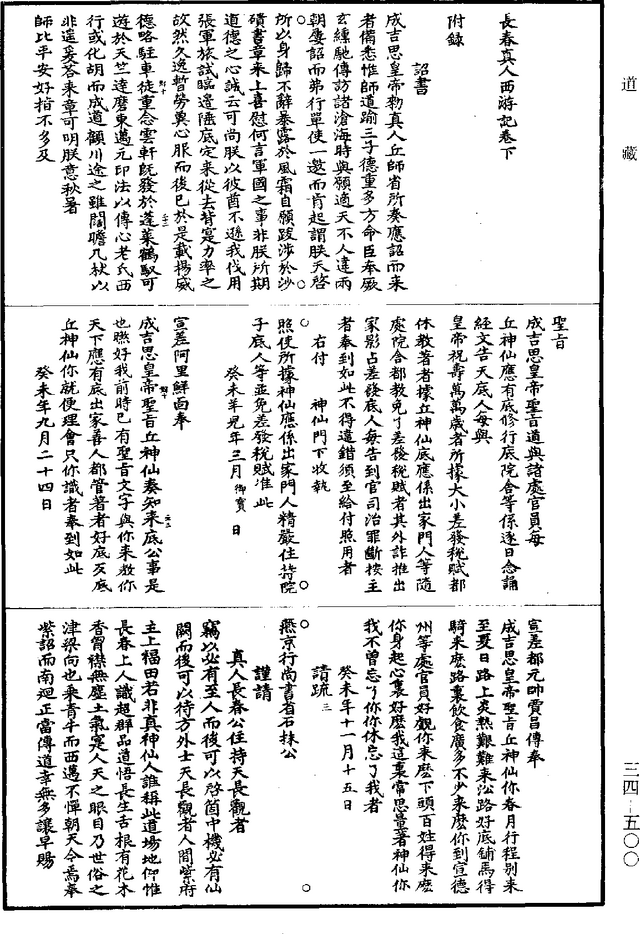 道藏
長春真人西游記卷下
附錄
詔書
成吉思皇帝敕真人丘師省所奏應詔而來
者備悉惟師道踰三子德重多方命臣奉厥
玄纁馳傳訪諸滄海時與願適天不人違兩
朝屢詔而弗行單使一邀而肯起謂朕天啓
所以身歸不辭暴露於風霜自願跋涉於沙
磧書章來上喜慰何言軍國之事非朕所期
道德之心誠云可尚朕以彼酋不遜我伐用
張軍旅試臨邊陲底定來從去背寔力率之
故然久逸暫勞冀心服而後已於是載揚威
德略駐車徒重念雲軒既發於蓬萊鶴馭可
遊於天竺達磨東邁元印法以傳心老氏西
行或化胡而成道顧川途之雖闊瞻几杖以
非遥爰荅來章可明朕意秋暑
師比平安好指不多及
聖旨
成吉思皇帝聖旨道與諸處官員每
丘神仙應有底修行底院舍等係逐日念誦
經文告天底人每與
皇帝祝壽萬萬歲者所據大小差發稅賦都
休教著者據丘神仙底應係出家門人等隨
處院舍都教免了差發稅賦者其外詐推出
家影占差發底人每告到官司治罪斷按主
者奉到如此不得違錯須至給付照用者
右付　神仙門下收執
照使所據神仙應係出家門人精嚴住持院
子底人等並免差發稅賦准此
癸未羊兒年三月御寶　日
宣差阿里鮮面奉
成吉思皇帝聖旨丘神仙奏知來底公事是
也𭥍好我前時已有聖旨文字與你來教你
天下應有底出家善人都管著者好底歹底
丘神仙你就便理會只你識者奉到如此
癸未年九月二十四日
宣差都元帥賈昌傳奉
成吉思皇帝聖旨丘神仙你春月行程別來
至夏日路上炎熱艱難來沿路好底鋪馬得
騎來麼路裏飲食廣多不少來麼你到宣德
州等處官員好覷你來麼下頭百姓得來麼
你身起心裏好麼我這裏常思量著神仙你
我不曾忘了你你休忘了我者
癸未年十一月十五日
請疏三
燕京行尚書省石抹公
謹請
真人長春公住持天長觀者
竊以必有至人而後可以啓箇中機必有仙
闕而後可以待方外士天長觀者人間紫府
主上福田若非真神仙人誰稱此道場地仰惟
長春上人識超群品道悟長生舌根有花木
香胷襟無塵土氣寔人天之眼目乃世俗之
津梁向也乘青牛而西邁不憚朝天今焉奉
紫詔而南廻正當傳道幸無多讓早賜
三四—五〇〇